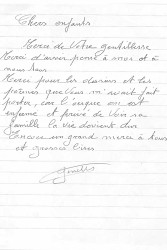 Chers enfants
Merci de votre gentillesse
Merci d'avoir pensé à moi et à
nous tous
Merci pour les dessins et les
poèmes que vous m'avait fait
porter, car l'orsque on est
enfermé et privé de son sa
famille la vie devient dur
Encore un grand merci à tous
et grosses bises